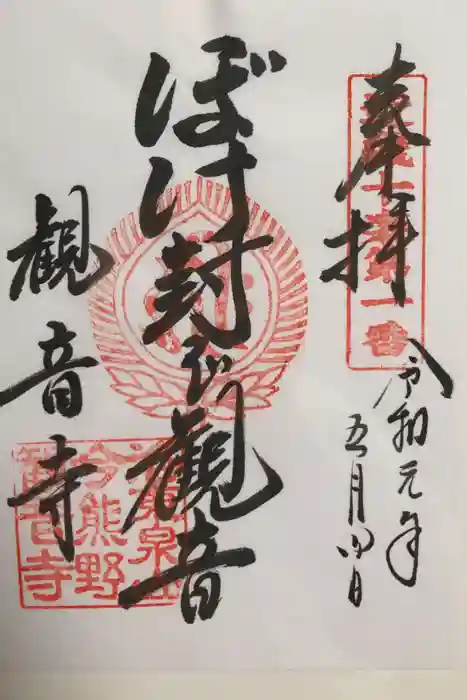 奉拝
令和元年
五月四日
ぼけ封じ観音
観音寺
今熊野
観音寺